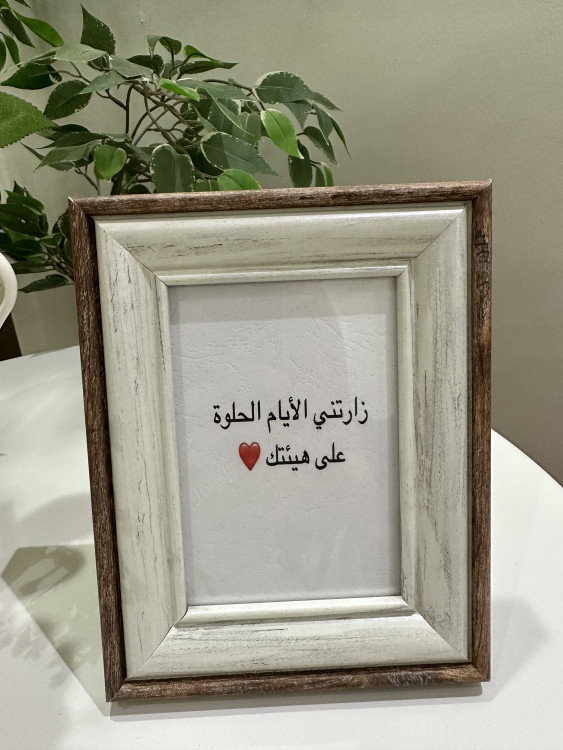 زارتني الأيام الحلوة
على هيئتك ❤️